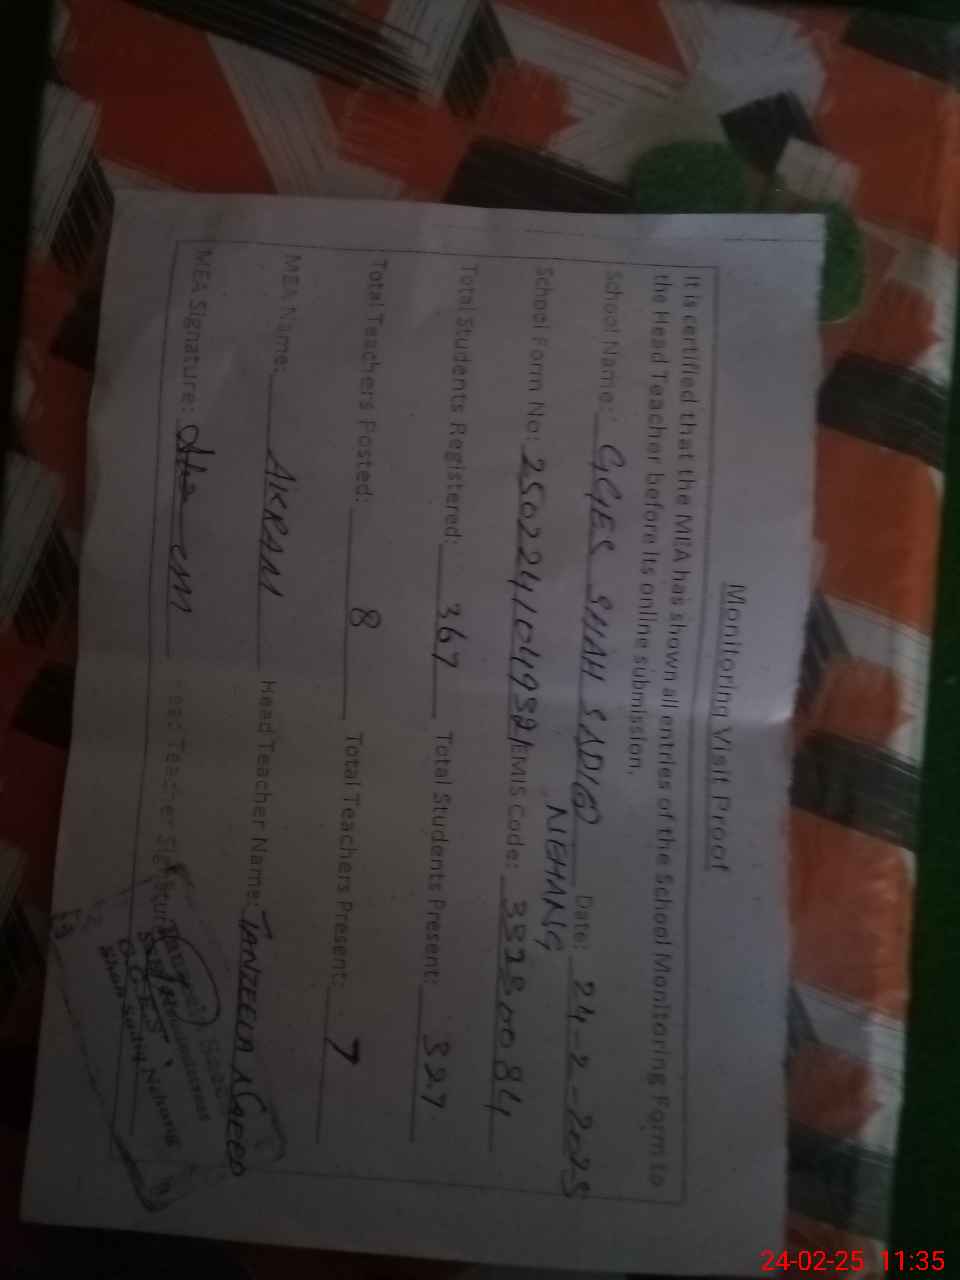 Monitoring Visit Proof
It is certified that the MEA has shown all entries of the School Monitoring Form to
the Head Teacher before its online submission.
School Name: GGES SHAH SADIQ NIEHANG Date: 24-2-2025
School Form No: EMIS Code:
Total Students Registered: 367 Total Students Present: 327
Total Teachers Posted: 8 Total Teachers Present: 7
MEA Name: AKRAM Head Teacher Name: TANZEELA SAEED
MEA Signature: Head Teacher Signature
24-02-25 11:35